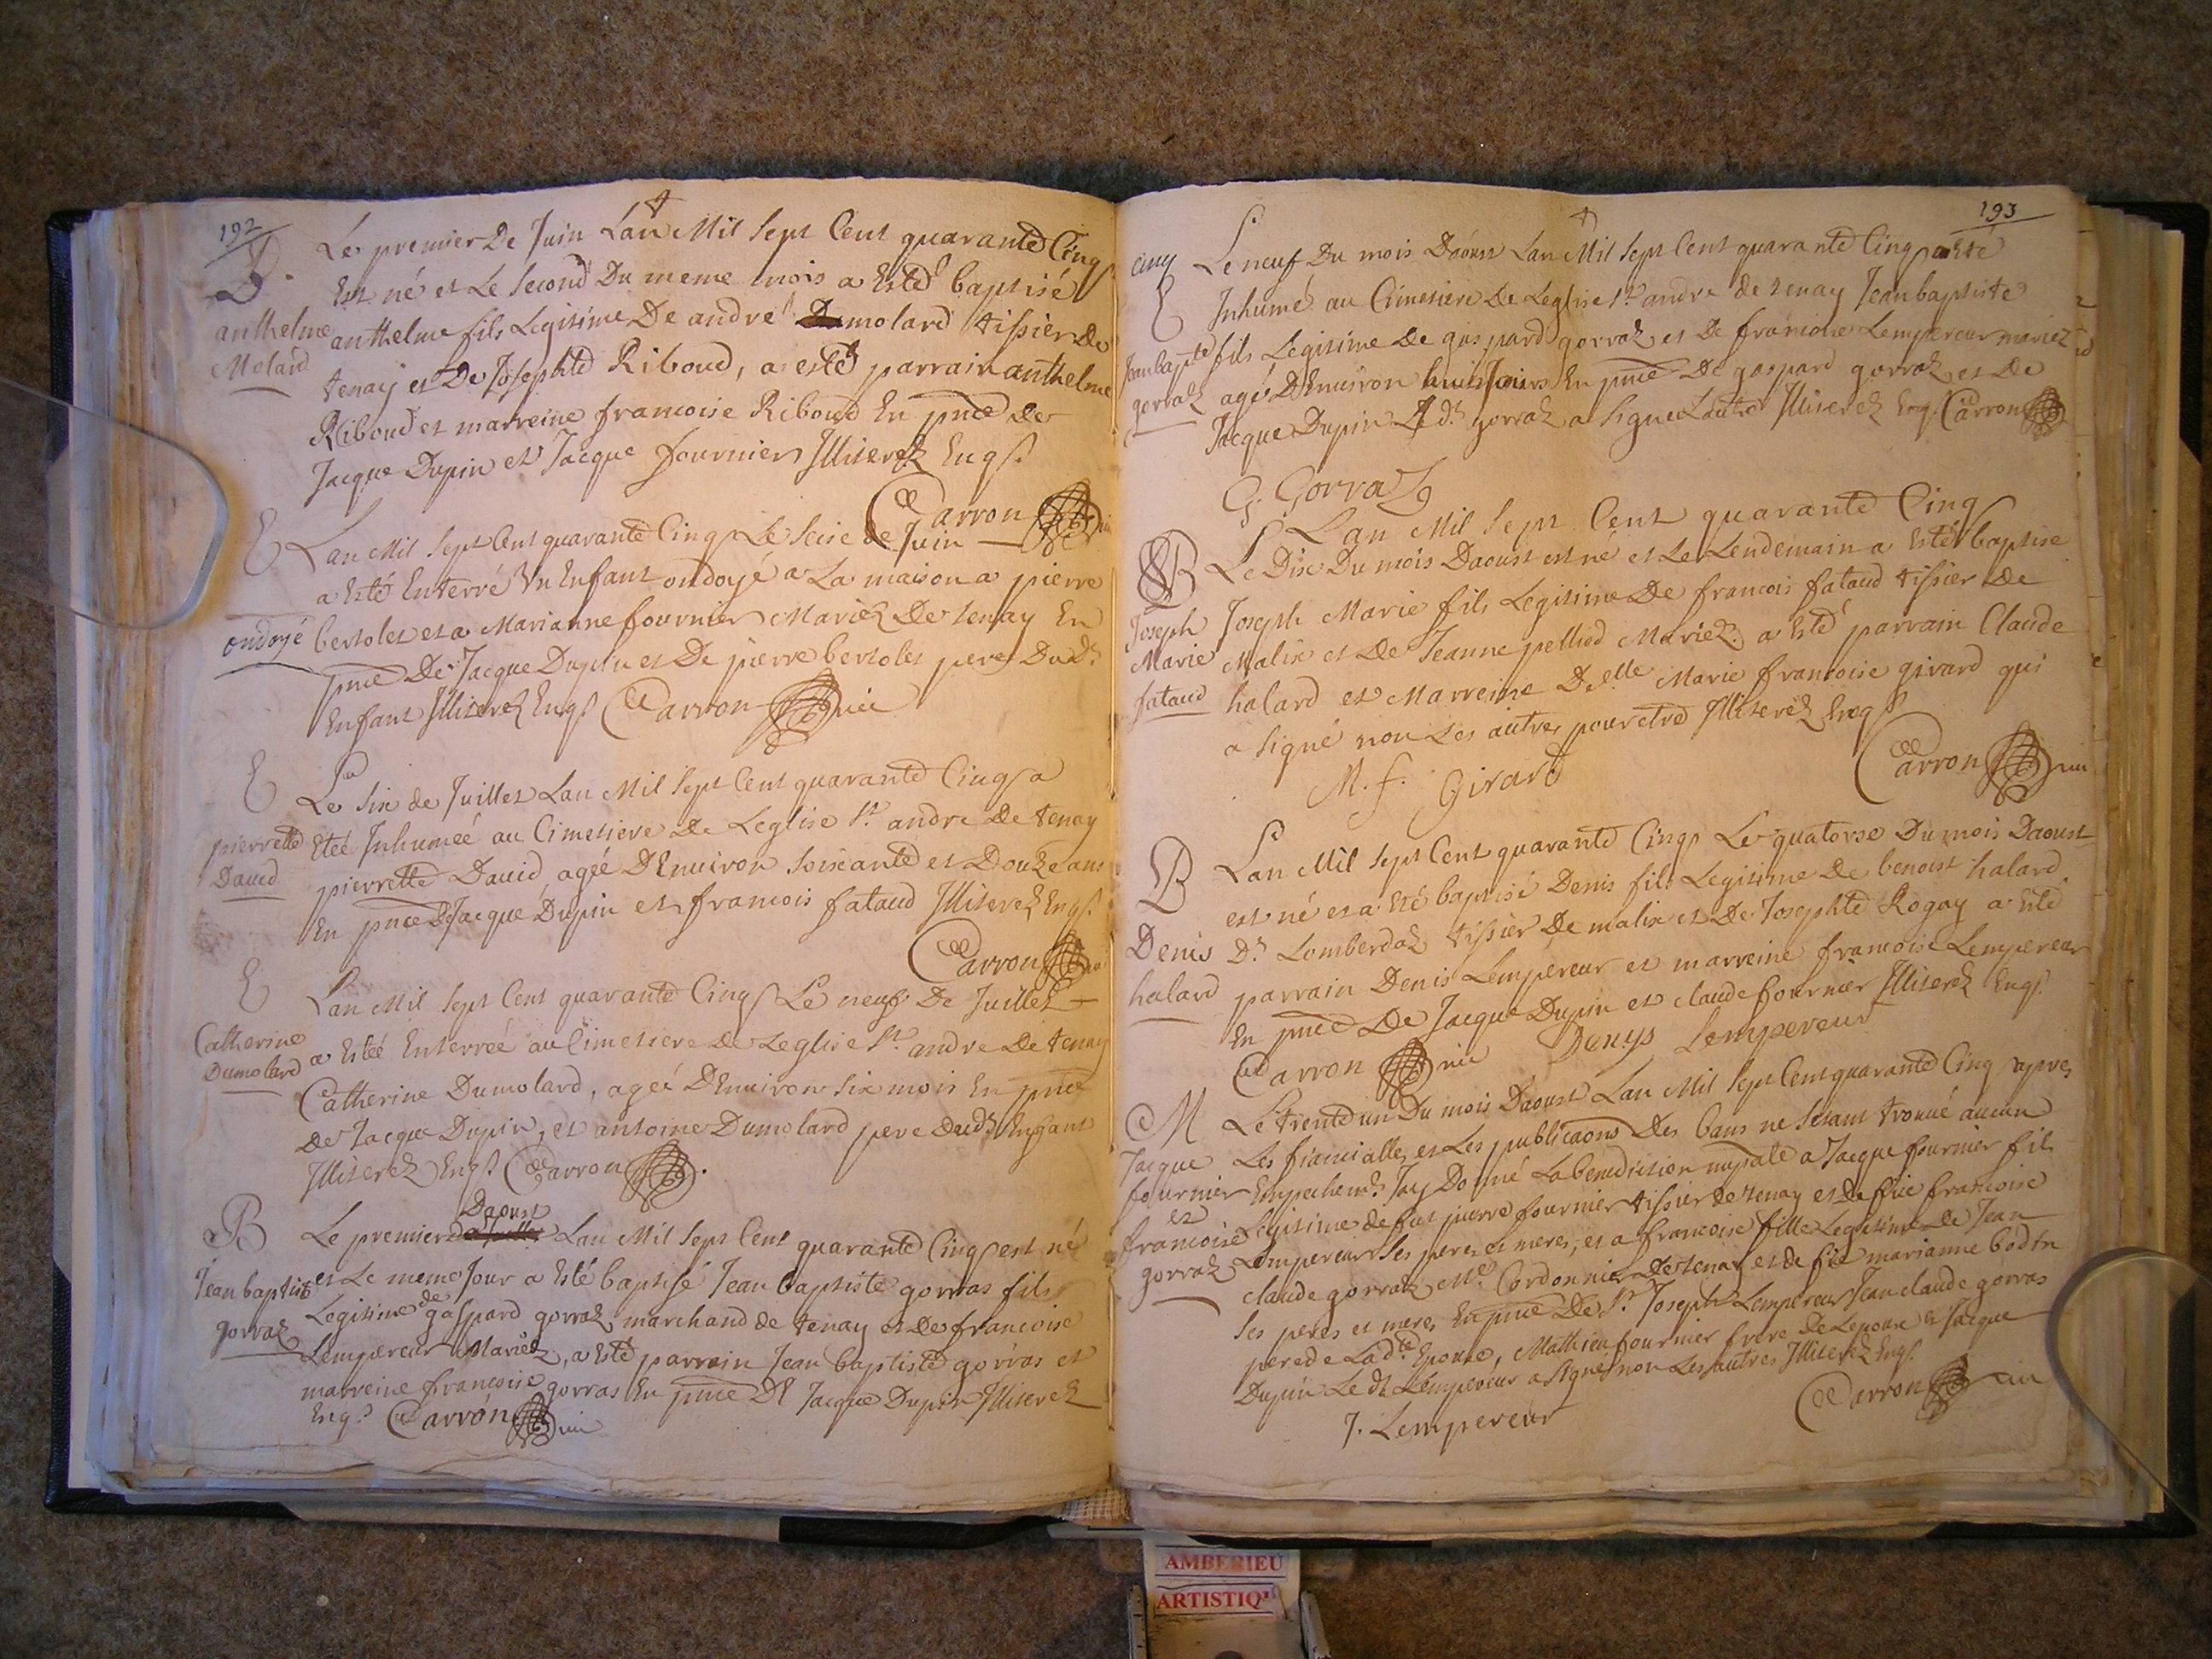 192
B.
anthelme
Molard
Le premier De Juin Lan Mil Sept Cent quarante Cinq
Est né et Le Second Du meme mois a Esté baptisé
anthelme fils Legitime De andré Dumolard tissier de
tenay et De Josephte Riboud, a esté parrain anthelme
Riboud et marreine francoise Riboud En pnce de
Jacque Dupin et Jacque fournier Illiterez Enqs.
Carron
E
ondoyé
Lan Mil Sept Cent quarante Cinq Le Seise de Juin
a Esté Enterré Un Enfant ondoyé a La maison a pierre
bertolet et a Marianne fournier Mariez De tenay En
pnce De Jacque Dupin et De pierre bertolet pere Dud.
Enfant Illiterez Enqs Carron
E
pierrette
David
Le Six de Juillet Lan Mil Sept Cent quarante Cinq a
Eteé Inhumeé au Cimetiere De Leglise St. andre De tenay
pierrette David ageé D'Environ Soixante et Douze ans
En pnce De Jacque Dupin et francois fataud Illiterez Enqs.
Carron
E
Catherine
Dumolard
Lan Mil Sept Cent quarante Cinq Le neuf De Juillet
a Esteé Enterreé au Cimetiere De Leglise St. andre De tenay
Catherine Dumolard, ageé D'Environ Six mois En pnce
de Jacque Dupin, et antoine Dumolard pere Dud. Enfant
Illiterez Enqs Carron
B
Jean baptiste
gorraz
Daoust
Le premier de Juillet Lan Mil Sept Cent quarante Cinq est né
et Le meme Jour a Esté baptisé Jean baptiste gorras fils
Legitime de gaspard gorraz marchand de tenay et De francoise
Lempereur Mariez, a Esté parrain Jean baptiste gorras et
marreine francoise gorras En pnce De Jacque Dupin Illiterez
Enqs Carron
193
cinq
E
Jean bapte
gorraz
Le neuf Du mois Daoust Lan Mil Sept Cent quarante Cinq a Eté
Inhumé au Cimetiere De Leglise St. andre de tenay Jean baptiste
fils Legitime De gaspard gorraz et De francoise Lempereur mariez
agé D'Environ huit Jours En pnce De gaspard gorraz et De
Jacque Dupin Led. gorraz a Signé Lautre Illiterez Enqs Carron
G. Gorraz
B
Joseph
Marie
fataud
Lan Mil Sept Cent quarante Cinq
Le Dix Du mois Daoust est né et Le Lendemain a Esté baptisé
Joseph Marie fils Legitime De francois fataud tissier De
Malix et De Jeanne pelliod Mariez. a Esté parrain Claude
halard et Marreine Delle Marie francoise girard qui
a Signé non Les autres pour etre Illiterez Enqs
M. f. Girard
Carron
B
Denis
halard
Lan Mil Sept Cent quarante Cinq Le quatorse Du mois Daoust
est né et a Eté baptisé Denis fils Legitime De benoist halard
Dt. Lomberdaz tissier De malix et De Josephte Rogay a Esté
parrain Denis Lempereur et marreine francoise Lempereur
En pnce De Jacque Dupin et claude fournier Illiterez Enqs.
Carron Denys Lempereur
M
Jacque
fournier
et
francoise
gorraz
Le trente un Du mois Daoust Lan Mil Sept Cent quarante Cinq apres
Les fiancialles et Les publicaons Des bans ne Setant trouué aucun
Empechemt. Jay Donné La benediction nupale a Jacque fournier fils
Legitime de fut pierre fournier tissier de tenay et de fue francoise
Lempereur Ses peres et meres, et a francoise fille Legitime De Jean
claude gorraz Me. Cordonnier De tenay et de fue marianne bodin
Ses peres et meres En pnce De Sr. Joseph Lempereur Jean claude gorras
pere de Ladte. Epouse, Mathieu fournier frere De Lepoux et Jacque
Dupin Le dt Lempereur a Signé non Les autres Illiterez Enqs.
Carron
J. Lempereur
AMBERIEU
ARTISTIQ